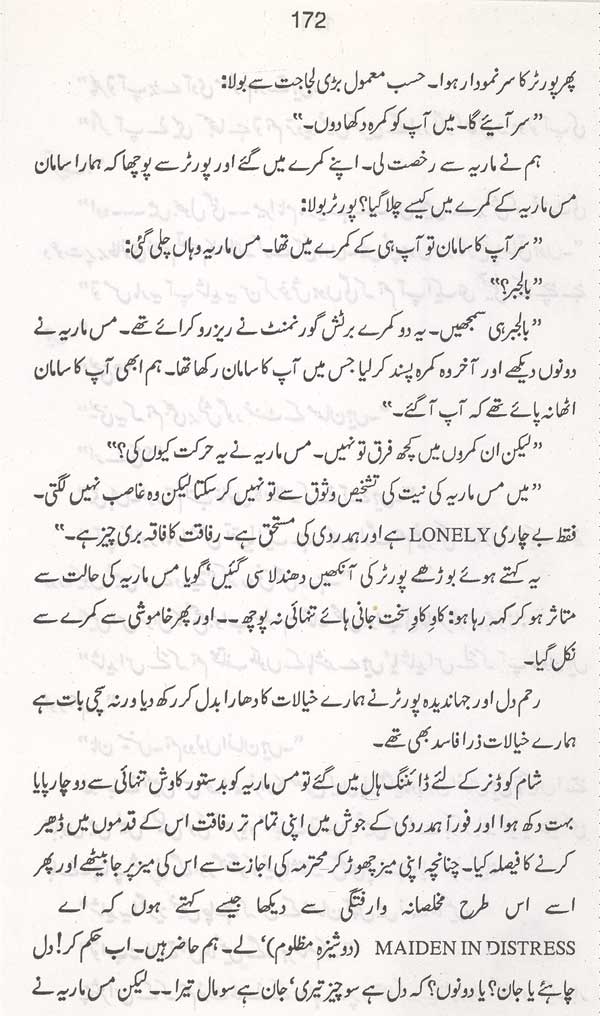 172
پھر پورٹر کا سر نمودار ہوا۔ حسب معمول بڑی لجاجت سے بولا:
”سر آیئے گا۔ میں آپ کو کمرہ دکھا دوں۔“
ہم نے ماریہ سے رخصت لی۔ اپنے کمرے میں گئے اور پورٹر سے پوچھا کہ ہمارا سامان
مس ماریہ کے کمرے میں کیسے چلا گیا؟ پورٹر بولا:
”سر آپ کا سامان تو آپ ہی کے کمرے میں تھا۔ مس ماریہ وہاں چلی گئی:
”بالجبر؟“
”بالجبر ہی سمجھیں۔ یہ دو کمرے برٹش گورنمنٹ نے ریزرو کرائے تھے۔ مس ماریہ نے
دونوں دیکھے اور آخر وہ کمرہ پسند کر لیا جس میں آپ کا سامان رکھا تھا۔ ہم ابھی آپ کا سامان
اٹھا نہ پائے تھے کہ آپ آ گئے۔“
”لیکن ان کمروں میں کچھ فرق تو نہیں۔ مس ماریہ نے یہ حرکت کیوں کی؟“
”میں مس ماریہ کی نیت کی تشخیص وثوق سے تو نہیں کر سکتا لیکن وہ غاصب نہیں لگتی۔
فقط بے چاری LONELY ہے اور ہمدردی کی مستحق ہے۔ رفاقت کا فاقہ بری چیز ہے۔“
یہ کہتے ہوئے بوڑھے پورٹر کی آنکھیں دھندلا سی گئیں‘ گویا مس ماریہ کی حالت سے
متاثر ہو کر کہہ رہا ہو: کاوِ کاوِ سخت جانی ہائے تنہائی نہ پوچھ۔۔ اور پھر خاموشی سے کمرے سے
نکل گیا۔
رحم دل اور جہاندیدہ پورٹر نے ہمارے خیالات کا دھارا بدل کر رکھ دیا ورنہ سچی بات ہے
ہمارے خیالات ذرا فاسد بھی تھے۔
شام کو ڈنر کے لئے ڈائننگ ہال میں گئے تو مس ماریہ کو بدستور کاوش تنہائی سے دوچار پایا
بہت دکھ ہوا اور فوراً ہمدردی کے جوش میں اپنی تمام تر رفاقت اس کے قدموں میں ڈھیر
کرنے کا فیصلہ کیا۔ چنانچہ اپنی میز چھوڑ کر محترمہ کی اجازت سے اس کی میز پر جا بیٹھے اور پھر
اسے اس طرح مخلصانہ وارفتگی سے دیکھا جیسے کہتے ہوں کہ اے
MAIDEN IN DISTRESS (دوشیزہ مظلوم)‘ لے۔ ہم حاضر ہیں۔ اب حکم کر! دل
چاہئے یا جان؟ یا دونوں؟ کہ دل ہے سو چیز تیری‘ جان ہے سو مال تیرا۔۔ لیکن مس ماریہ نے